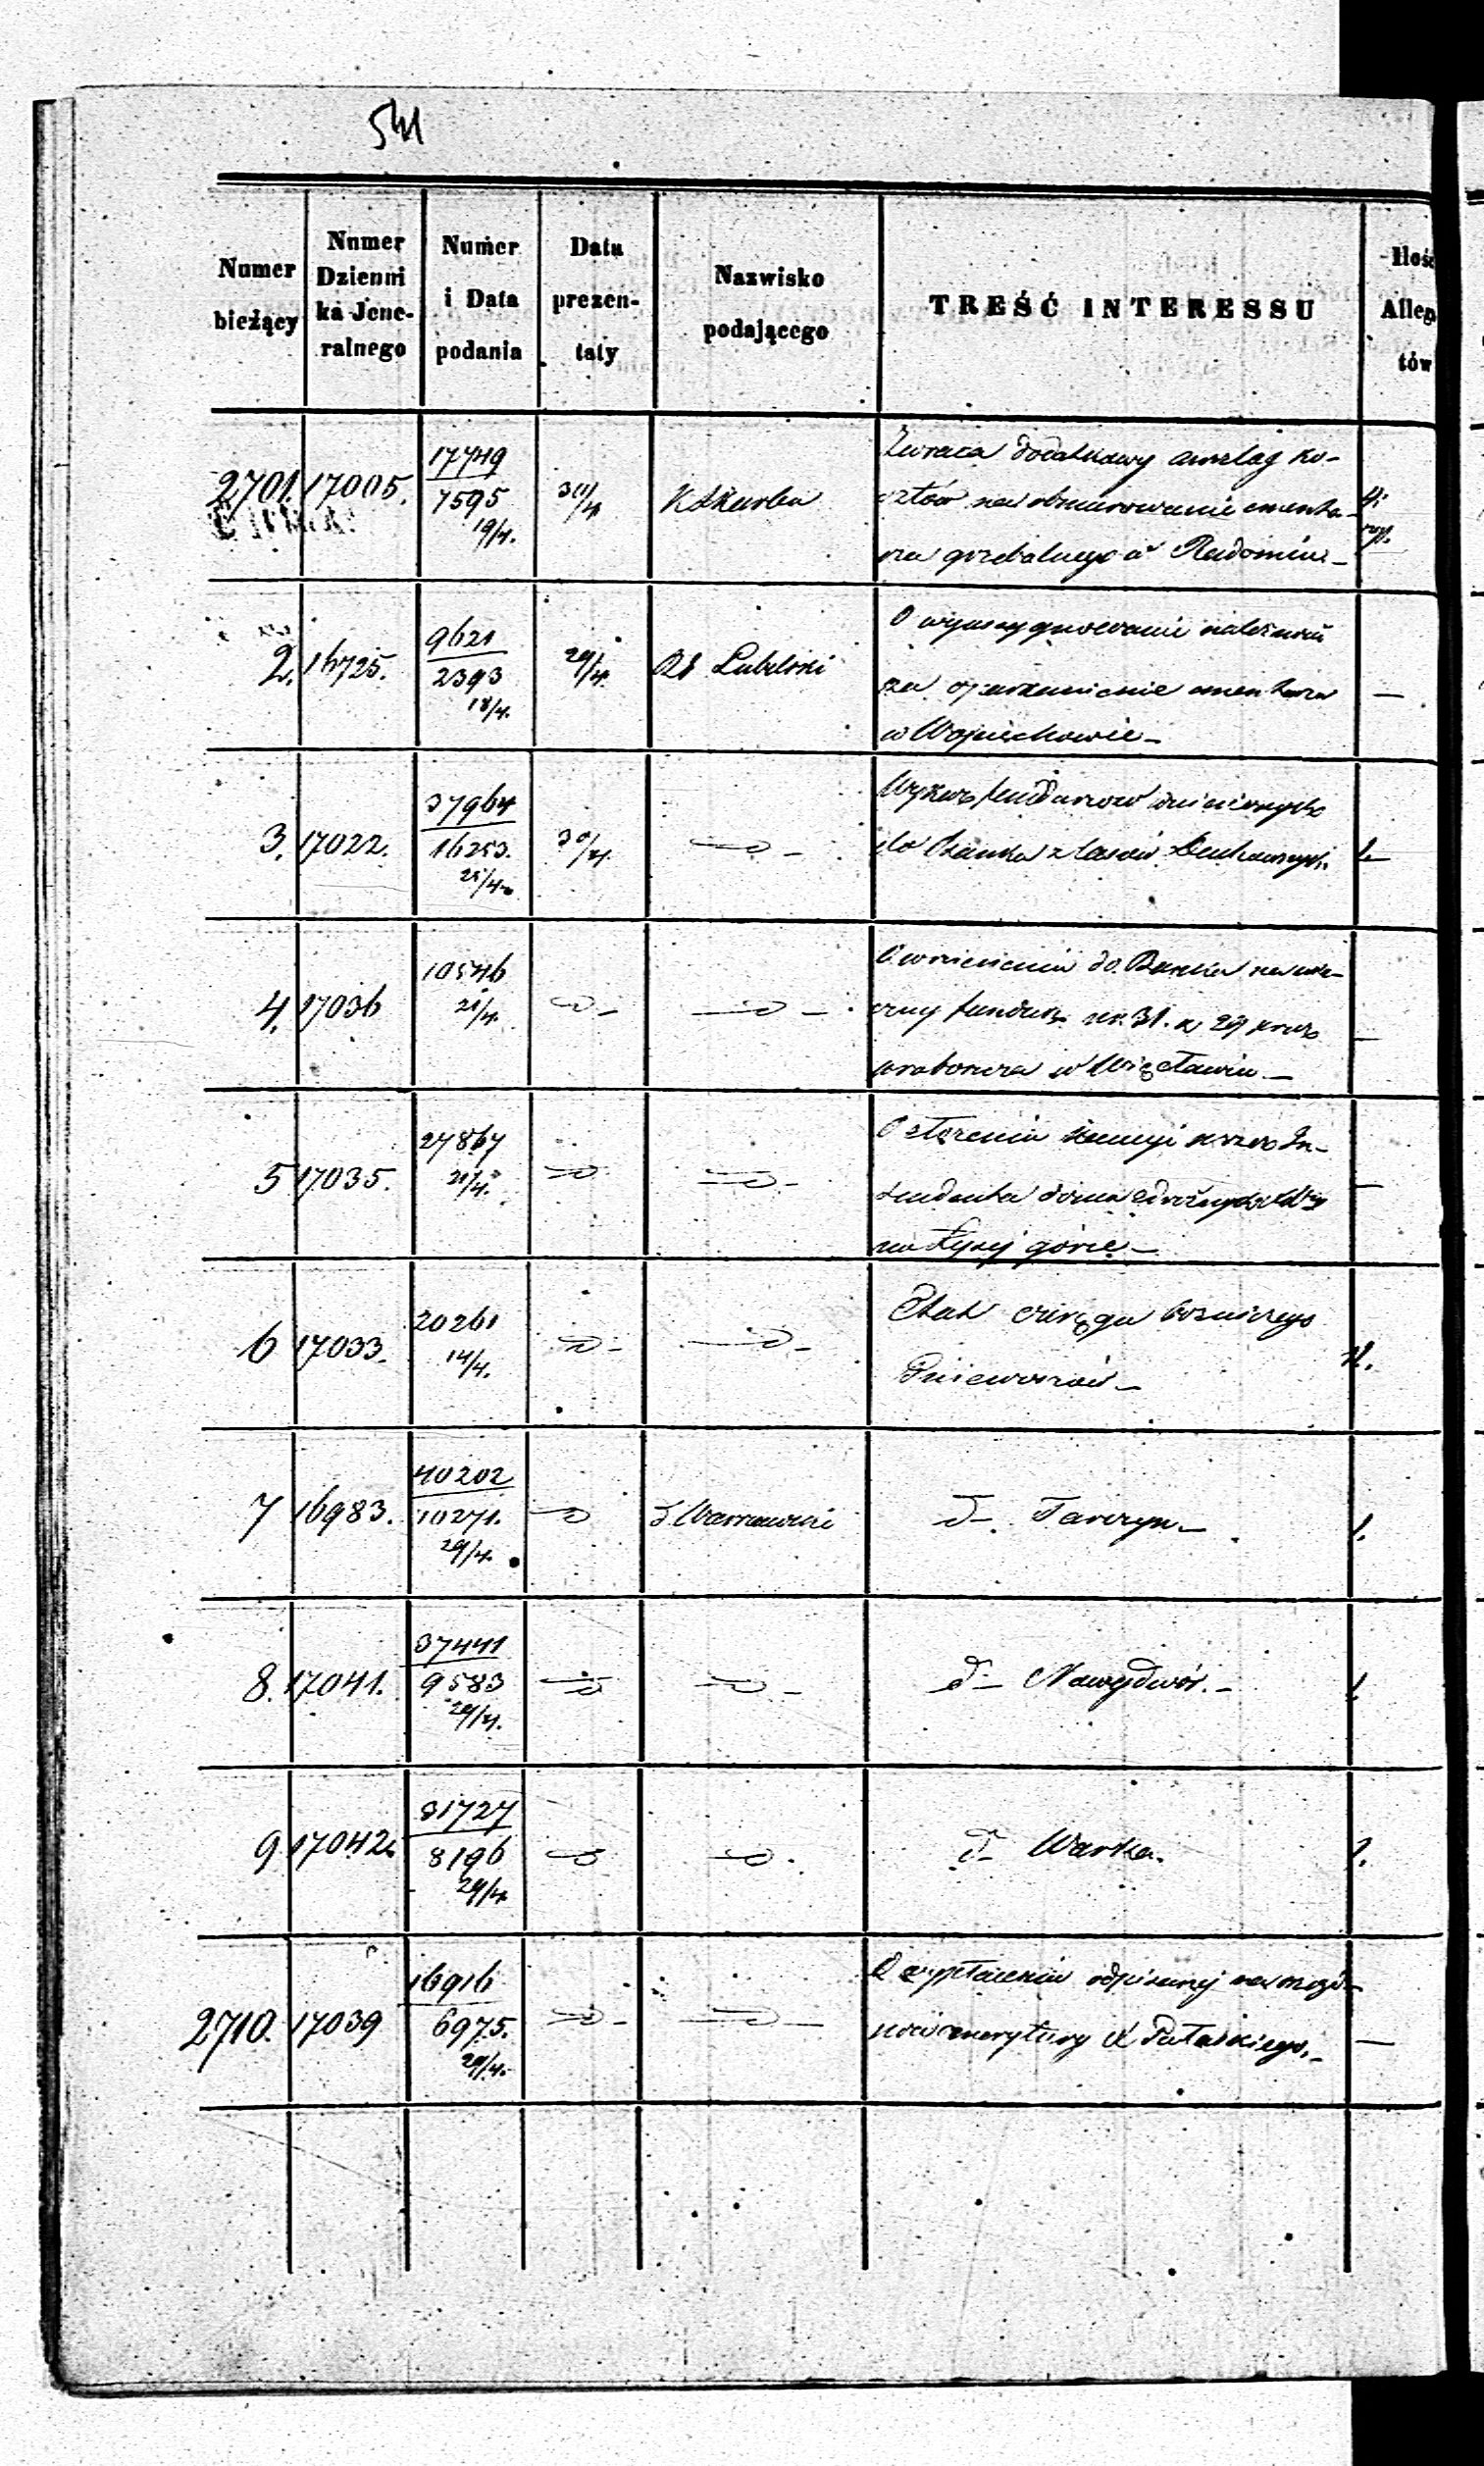 541
Numer bieżący
Numer Dzienni ka Jene- ralnego
Numer i Data podania
Data prezen- taty
Nazwisko podającego
TREŚĆ INTERESSU
Ilość Allega tów
2701. 17005. 17749 7595 19/4. 30/4 K Skarbu
Zwraca dodatkowy anszlag ko-
sztów na obmurowanie cmenta-
rza grzebalnego w Radominie
2. 16725. 9621 2393 18/4. 29/4. Lubelski
O wyassygnowanie
za oparkanienie cmentarza
w Wojciechowie —
—
3. 17022. 37964 16253. 30/4.
Wykaz funduszów wniesionych
do Banku z lasów
1.
4. 17036 10546 21/4.
O wniesieniu do Banku na wie-
czny fundusz rs. 31. k 29 przez
proboszcza w
—
5 17035. 27867 21/4.
O złożeniu przez In-
tendenta
na Łysej górze —
—
6 17033. 20261 14/4.
Etat okręgu bożniczego
Gniewoszów —
7 16983. 40202 10271. 29/4. Warszawski
d— Tarczyn —
1.
8. 17041. 37441 9583 29/4.
d— Nowydwór. —
1.
9 17042. 31727 8196 29/4
d— Warka.
1.
2710. 17039 16916 6975. 29/4.
O wypłacenie odpisanej na
emerytury X Pułaskiego. —
—